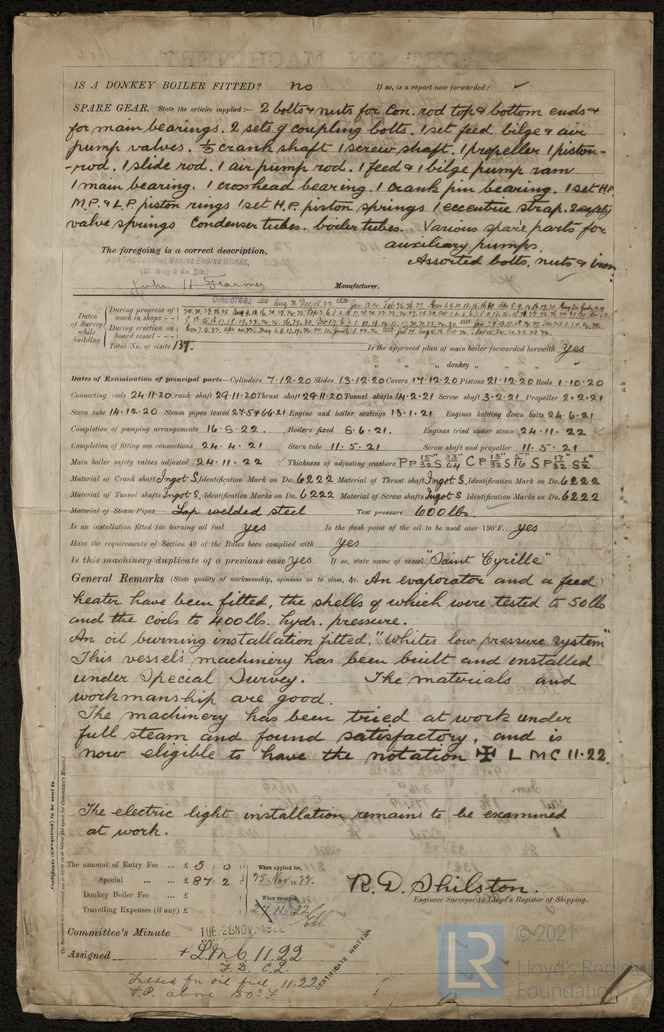 IS A DONKEY BOILER FITTED? no If so, is a report now forwarded? ✓
SPARE GEAR. State the articles supplied:— 2 bolts & nuts for Con. rod top & bottom ends &
for main bearings. 2 sets of coupling bolts. 1 set feed, bilge & air
pump valves. 1/3 crank shaft 1 screw shaft. 1 propeller 1 piston-
-rod. 1 slide rod. 1 air pump rod. 1 feed & 1 bilge pump ram
1 main bearing. 1 crosshead bearing. 1 crank pin bearing. 1 set H.P.
M.P. & L.P. piston rings 1 set H.P. piston springs 1 eccentric strap. 2 safety
valve springs Condenser tubes. boiler tubes. Various spare parts for
auxiliary pumps.
Assorted bolts, nuts & iron
The foregoing is a correct description,
FOR THE CENTRAL MARINE ENGINE WORKS,
John H
DIRECTOR.
Manufacturer.
Dates of Survey while building
During progress of work in shops - -
During erection on board vessel - - -
Total No. of visits 137.
Is the approved plan of main boiler forwarded herewith Yes
" " " donkey " " "
Dates of Examination of principal parts—Cylinders 7.12.20 Slides 13.12.20 Covers 14.12.20 Pistons 21.12.20 Rods 1.10.20
Connecting rods 24.11.20 Crank shaft 29.11.20 Thrust shaft 29.11.20 Tunnel shafts 14.2.21 Screw shaft 3.2.21 Propeller 2.2.21
Stern tube 14.12.20 Steam pipes tested Engine and boiler seatings 13.1.21 Engines holding down bolts 24.6.21
Completion of pumping arrangements 16.5.22 Boilers fixed 8.6.21. Engines tried under steam 24.11.22
Completion of fitting sea connections 24.4.21 Stern tube 11.5.21 Screw shaft and propeller 11.5.21
Main boiler safety valves adjusted 24.11.22 Thickness of adjusting washers
Material of Crank shaft Ingot S. Identification Mark on Do. 6222 Material of Thrust shaft Ingot S. Identification Mark on Do. 6222
Material of Tunnel shafts Ingot S. Identification Marks on Do. 6222 Material of Screw shafts Ingot S Identification Marks on Do. 6222
Material of Steam Pipes Lap welded steel Test pressure 600 lbs.
Is an installation fitted for burning oil fuel yes Is the flash point of the oil to be used over 150°F. yes
Have the requirements of Section 49 of the Rules been complied with yes
Is this machinery duplicate of a previous case yes If so, state name of vessel "Saint Cyrille"
General Remarks (State quality of workmanship, opinions as to class, &c. An evaporator and a feed
heater have been fitted, the shells of which were tested to 50 lb
and the coils to 400 lb. hydr. pressure.
An oil burning installation fitted, "Whites low pressure system"
This vessel's machinery has been built and installed
under Special Survey. The materials and
workmanship are good.
The machinery has been tried at work under
full steam and found satisfactory, and is
now eligible to have the notation ✠ L M C 11.22.
The electric light installation remains to be examined
at work.
Certificate (if required) to be sent to
The amount of Entry Fee ... £ 5 : 0 : When applied for,
Special ... £ 87 : 2 : 25 Nov. 1922
Donkey Boiler Fee ... £ : : When received,
Travelling Expenses (if any) £ : :
R. D. Shilston.
Engineer Surveyor to Lloyd's Register of Shipping.
Committee's Minute TUE. 28 NOV. 1922
Assigned + L.M.C. 11.22
F.D. C.L.
Fitted for oil fuel 11.22
F.P. above 150°F
CERTIFICATE WRITTEN
LR
© 2021
Lloyd's Register
Foundation